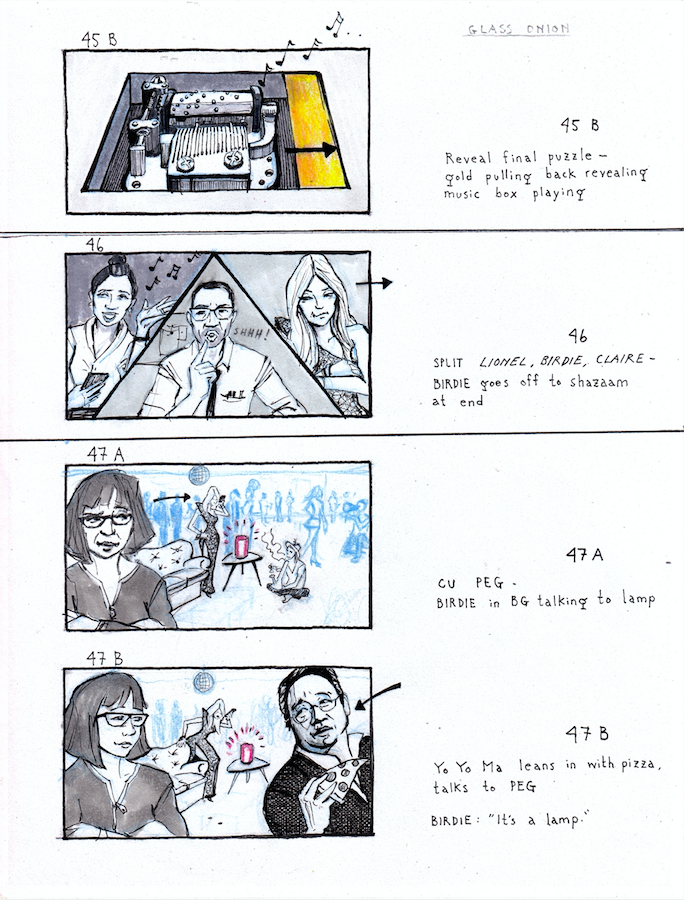 GLASS ONION
45 B
45 B
Reveal final puzzle -
gold pulling back revealing
music box playing
46
SHHH!
46
SPLIT LIONEL, BIRDIE, CLAIRE -
BIRDIE goes off to shazaam
at end
47 A
47 A
CU PEG -
BIRDIE in BG talking to lamp
47 B
47 B
Yo Yo Ma leans in with pizza,
talks to PEG
BIRDIE: "It's a lamp."